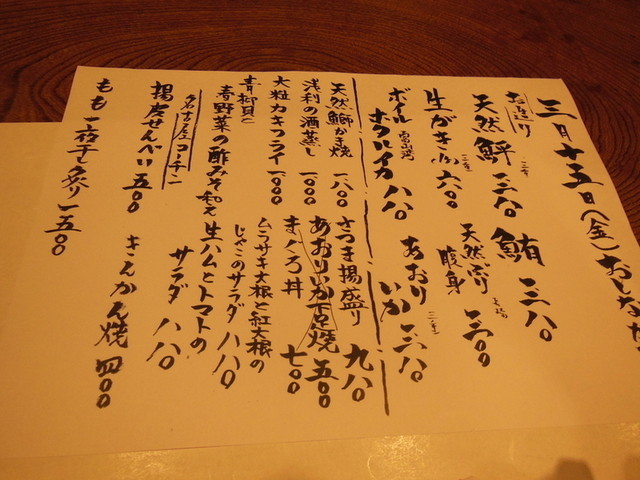 三月十五日(金)おしながき
お造り
天然鮃 三重 一三八〇
鮪 一三八〇
生がき 三重 六〇〇
天然ぶり腹身 長崎 一三〇〇
ボイルホタルイカ 富山湾 八八〇
あおりいか 三重 一三八〇
天然鰤かま焼 一八〇〇
さつま揚盛り 九八〇
浅利の酒蒸し 一〇〇〇
あおりいか下足焼 五八〇
大粒カキフライ 一〇〇〇
まぐろ丼 七〇〇
青柳貝と春野菜の酢みそ和え
ムラサキ大根と紅大根のじゃこのサラダ 八八〇
生ハムとトマトのサラダ 八八〇
名古屋コーチン
揚皮せんべい 五八〇
きんかん焼 四〇〇
もも一夜干し炙り 一五〇〇